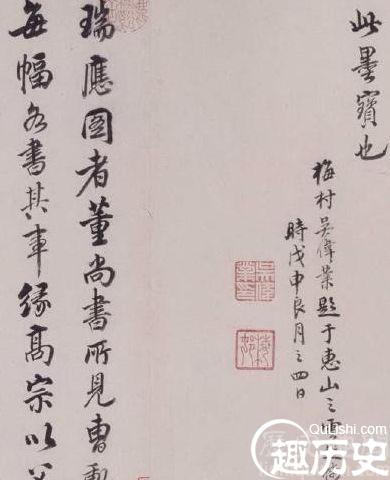 此墨寶也
梅村吳偉業題于惠山之
時戊申良月之四日
瑞應圖者董尚書所見曹勳
每幅各書其事緣高宗以
QuLishi.com
趣历史